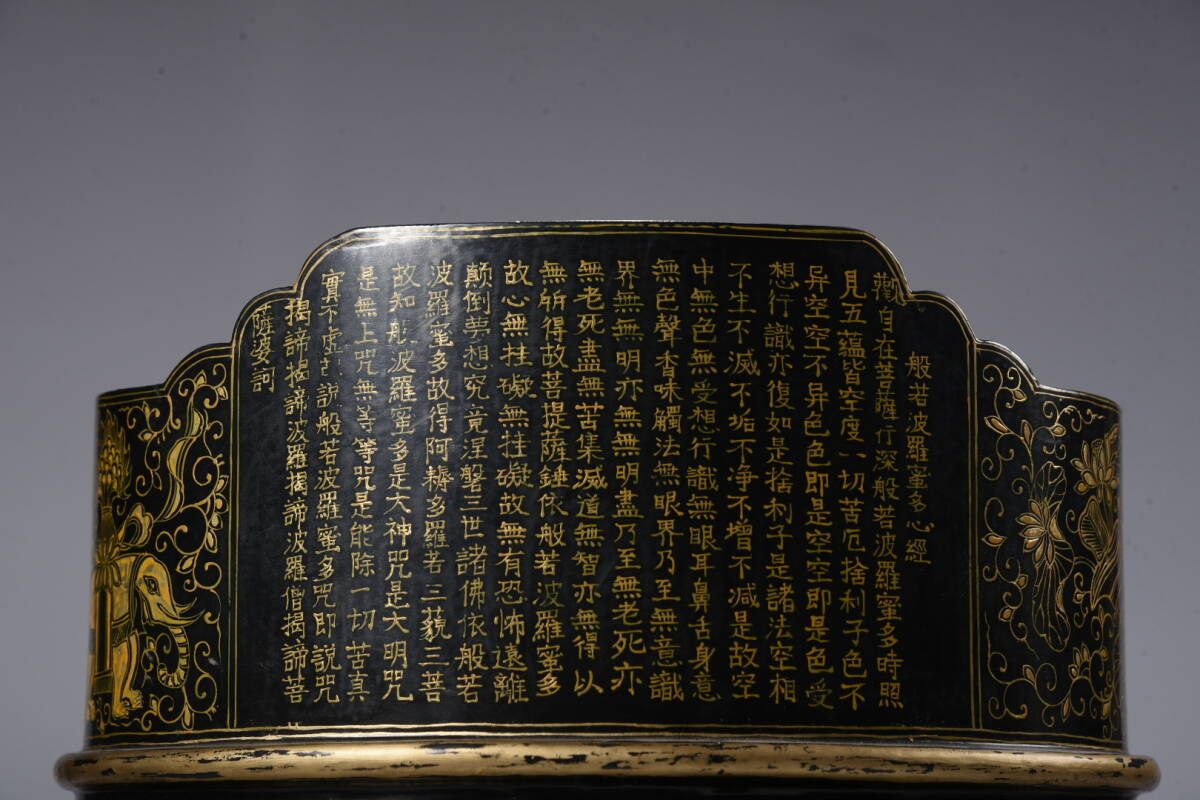 般若波羅蜜多心經
觀自在菩薩行深般若波羅蜜多時照
見五蘊皆空度一切苦厄捨利子色不
异空空不异色色即是空空即是色受
想行識亦復如是捨利子是諸法空相
不生不滅不垢不净不增不減是故空
中無色無受想行識無眼耳鼻舌身意
無色聲香味觸法無眼界乃至無意識
界無無明亦無無明盡乃至無老死亦
無老死盡無苦集滅道無智亦無得以
無所得故菩提薩錘依般若波羅蜜多
故心無挂礙無挂礙故無有恐怖遠離
顛倒夢想究竟涅磐三世諸佛依般若
波羅蜜多故得阿耨多羅若三藐三菩
故知般波羅蜜多是大神咒是大明咒
是無上咒無等等咒是能除一切苦真
實不虛説般若波羅蜜多咒即説咒
揭諦揭諦波羅揭諦波羅僧揭諦菩
薩婆訶